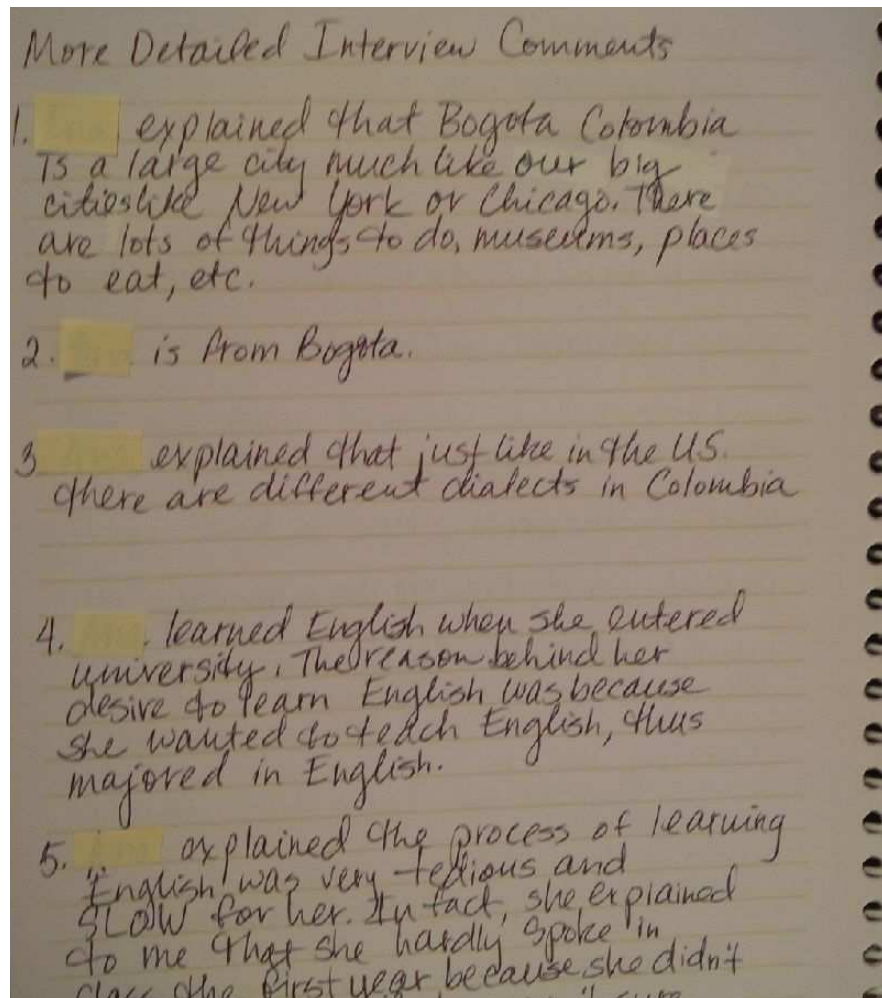 More Detailed Interview Comments
1. explained that Bogota Colombia
is a large city much like our big
cities like New York or Chicago. There
are lots of things to do, museums, places
to eat, etc.
2. is from Bogota.
3 explained that just like in the US.
there are different dialects in Colombia
4. learned English when she entered
university. The reason behind her
desire to learn English was because
she wanted to teach English, thus
majored in English.
5. explained the process of learning
"English" was very tedious and
SLOW for her. In fact, she explained
to me that she hardly spoke in
class the first year because she didn't